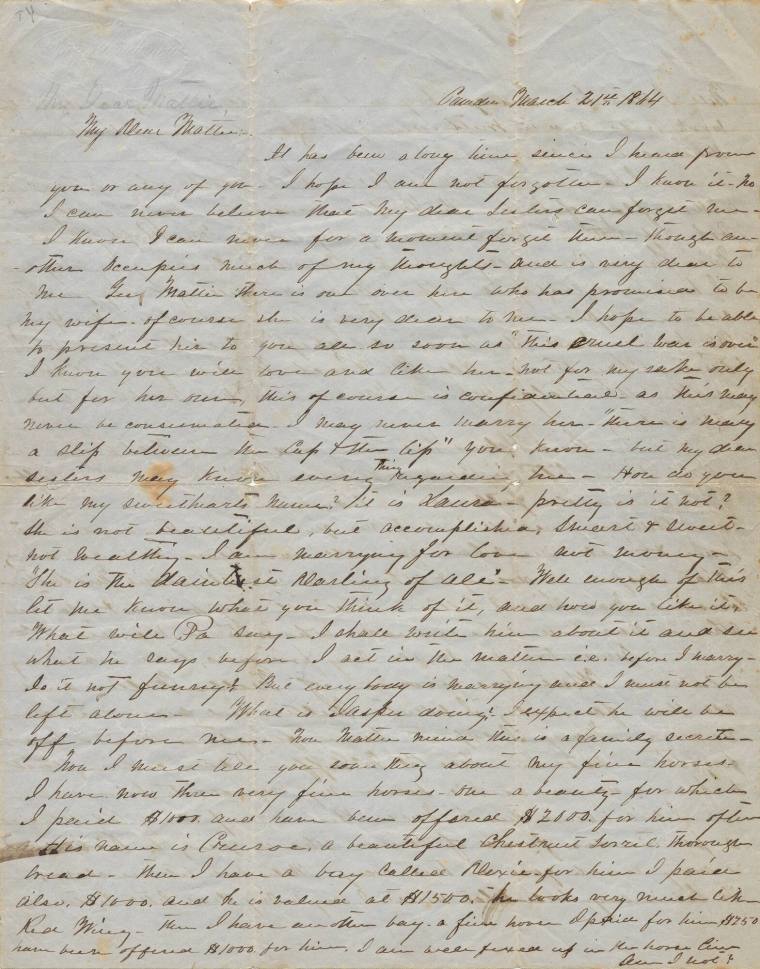 T4
Camden March 21st 1864
My Dear Mattie,
It has been along time since I heard from
you or any of you. I hope I am not forgotten - I know it - no
I can never believe that my dear Sisters can forget me -
I know I can never for a moment forget them - though an-
-other occupies much of my thoughts - and is very dear to
me Yes, Mattie there is one over here who has promised to be
my wife - of course she is very dear to me - I hope to be able
to present her to you all so soon as "this cruel war is over"
I know you will love and like her - not for my sake only
but for her own, this of course is confidential - as this may
never be consummated - I may never marry her - "there is many
a slip between the Cup & the lip" you know - but my dear
sisters may know every thing regarding me - How do you
like my sweethearts name? it is Laura - pretty is it not?
She is not beautiful, but accomplished, smart & sweet -
not wealthy - I am marrying for love not money -
"She is the daintiest Darling of all" - Well enough of this
let me know what you think of it, and how you like it,
What will Pa say - I shall write him about it and see
what he says before I act in the matter i.e. before I marry -
Is it not funny? But every body is marrying and I must not be
left alone - What is Jasper doing? I expect he will be
off before me - Now Mattie mind this is a family secret -
Now I must tell you some thing about my fine horses -
I have now three very fine horses - one a beauty - for which
I paid $1000. and have been offered $2000. for him often
His name is , a beautiful Chestnut Sorril, Thorough
bread - then I have a bay called Dixie for him I paid
also. $1000. and he is valued at $1500. he looks very much like
Red Wing - then I have another bay - a fine horse I paid for him $750
have been offered $1000. for him. I am well fixed up in the horse line
Am I not?